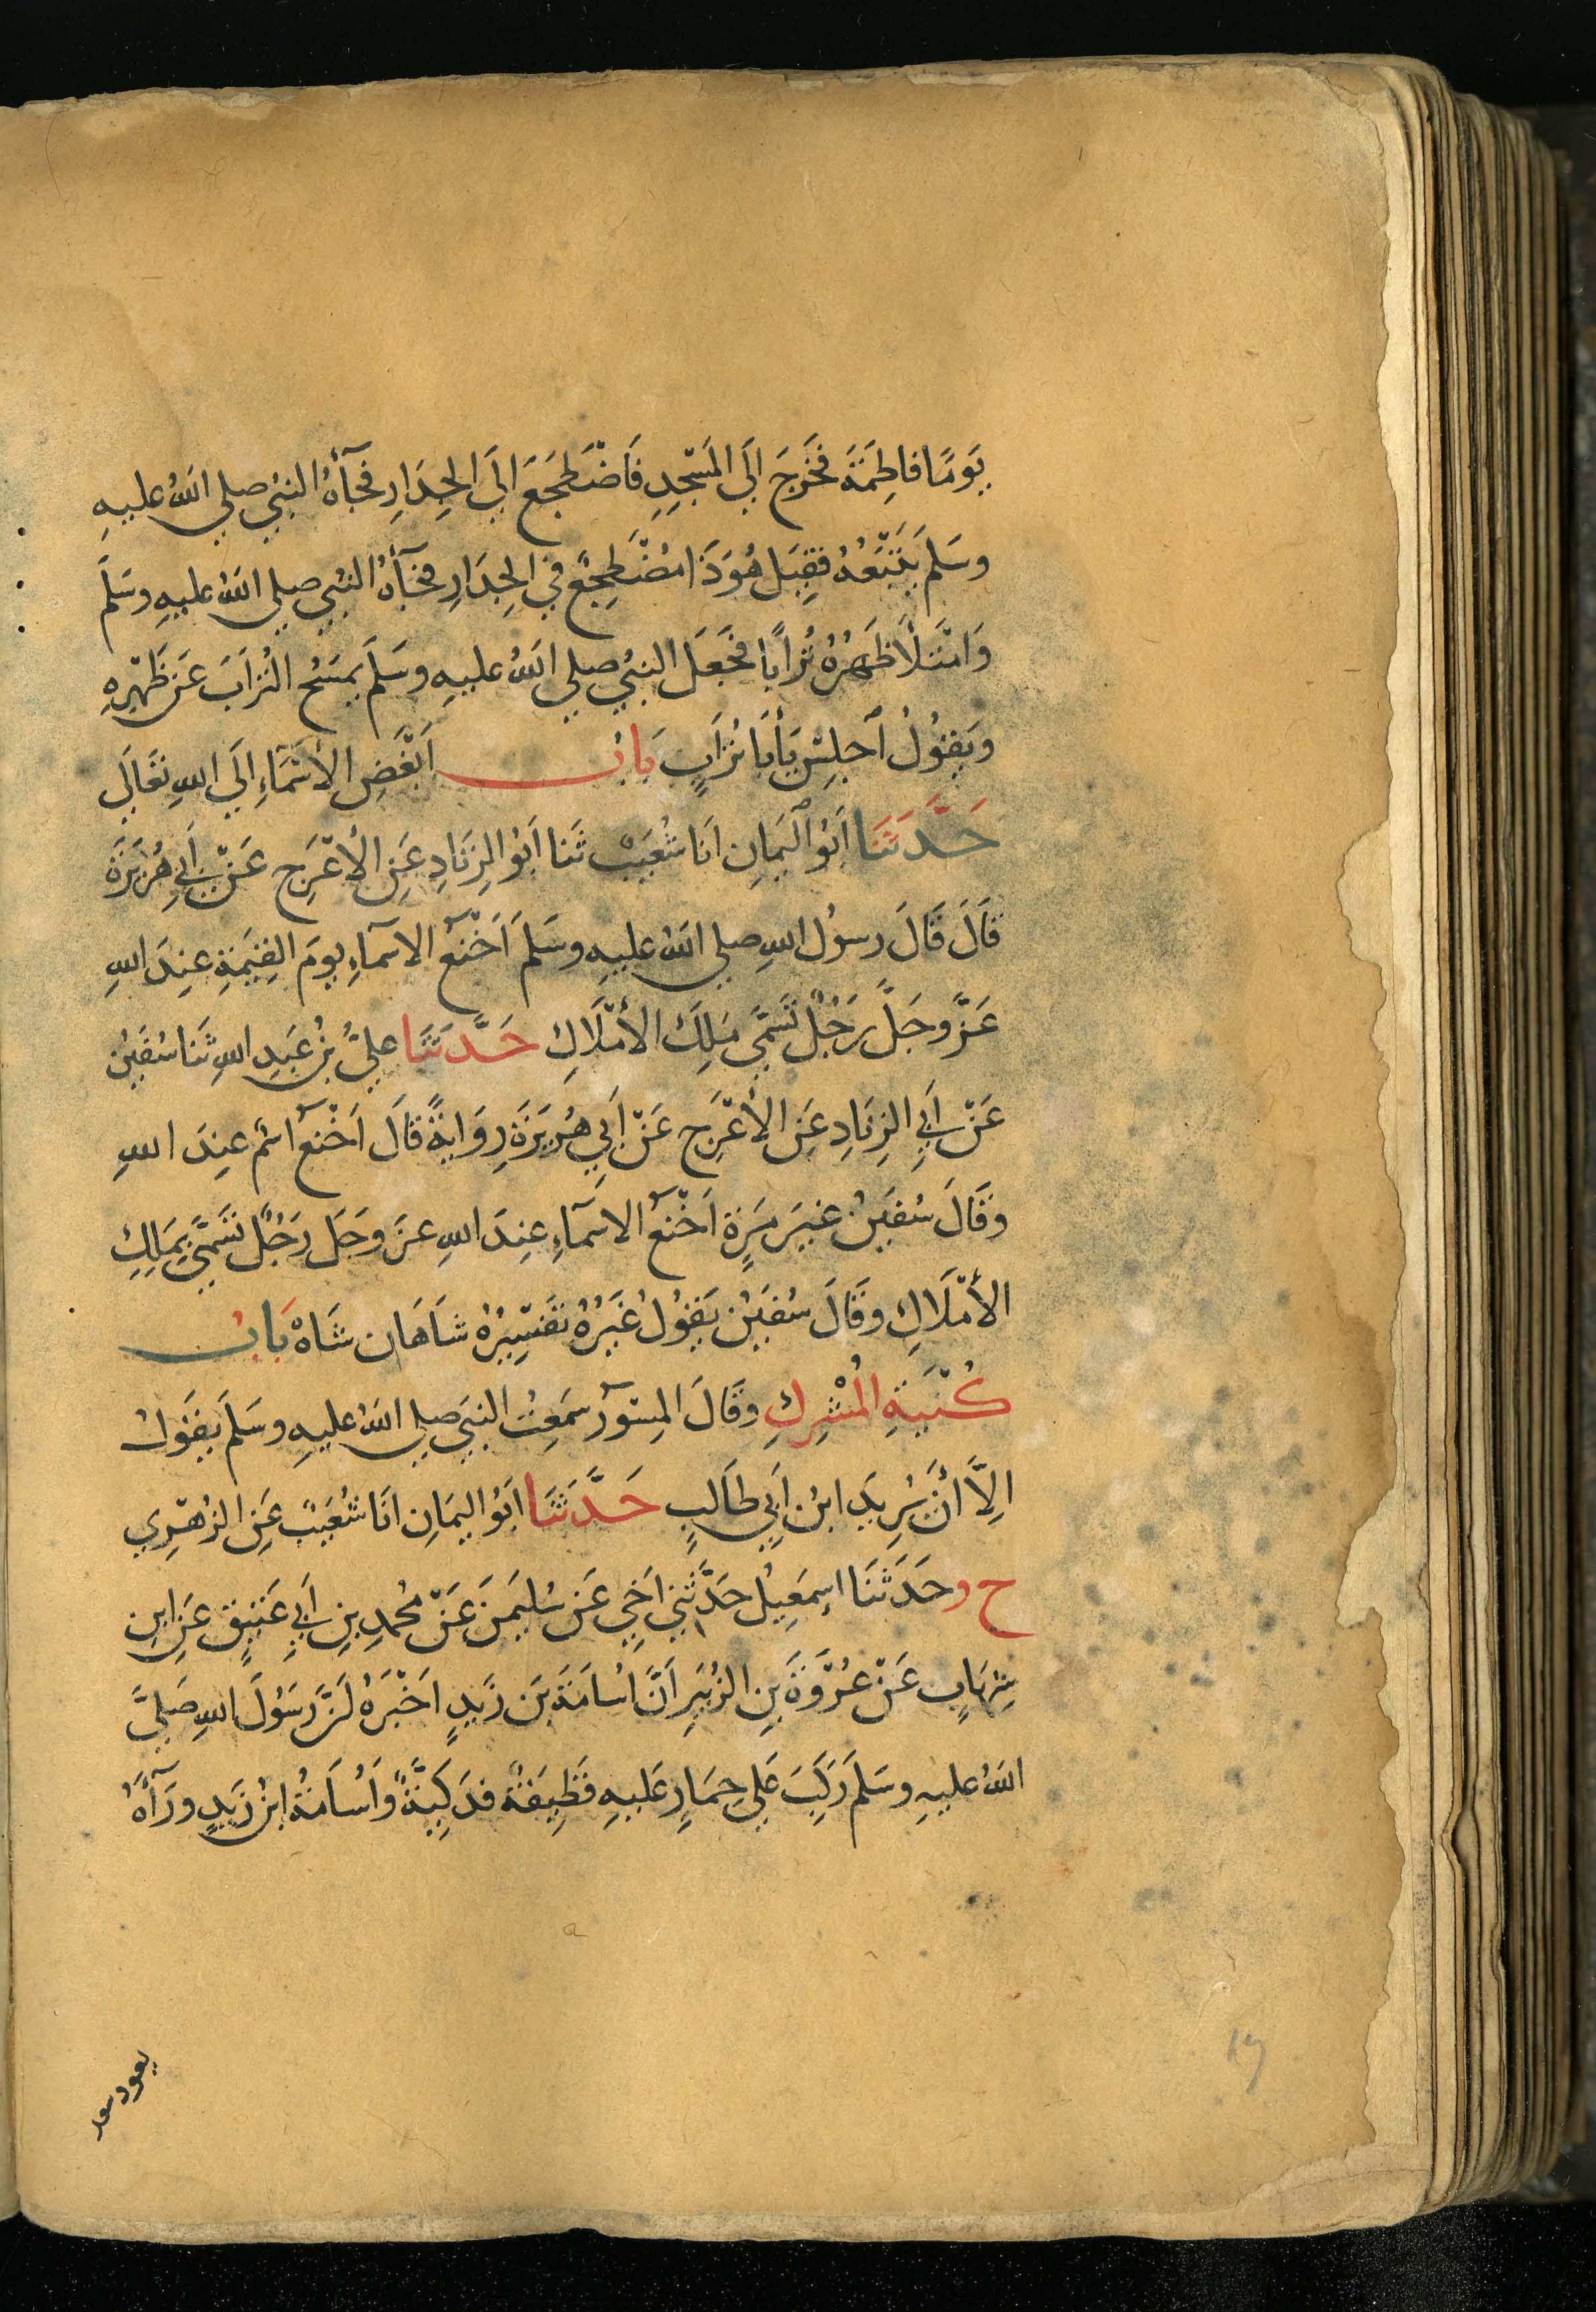 يَومًا فاطِمَةَ فَخَرَجَ اِلَى المَسْجِدِ فَاضْطَجَعَ اِلَى الجِدَارِ فَجَآءَهُ النبِيُّ صلي اللهُ عليهِ
وسَلمَ يَتْبَعُهُ فقِيلَ هُوَ ذَا مضْطَجِعٌ في الجِدَارِ فجَآءَهُ النبيُّ صلي اللهُ عليهِ وسَلمَ
وَامْتَلأَ ظَهرُهُ تُرابًا فجَعَلَ النبيُّ صلي اللهُ عليهِ وسَلمَ يمسَحُ التُرَابَ عَن ظَهْرِهِ
ويَقُولُ اَجلِسْ يَأبَا تُرَابٍ بَابُ اَبْغَضِ الأَسْمَاءِ اِلَى اللهِ تعَالَى
حَدَّثَنَا اَبُو اليَمانِ اَنَا شُعَيبٌ ثَنا اَبُو الزِنَادِ عَنِ الأَعْرَج عَنْ اَبي هُرَيرَةَ
قالَ قَالَ رسولُ اللهِ صلي اللهُ عليهِ وسَلمَ اَخْنعُ الاسمآءِ يومَ القِيَمةِ عِندَ اللهِ
عَزَّ وجَلَّ رَجُلٌ تَسَمَّى مَلِكَ الأَمْلَاكِ حَدَّثَنَا عليُّ بنُ عَبدِ اللهِ ثَنا سُفينُ
عَنْ اَبِي الزِنَادِ عَنِ الأَعْرَج عَنْ اَبي هُرَيرَةَ رِوَايةً قالَ اَخْنعُ اسْمٍ عندَ اللهِ
وقَالَ سُفينُ غيرَ مرَةٍ اَخْنعُ الاسمآءِ عِندَ اللهِ عزَ وجَل رَجُلٌ تسَمَّى بمَلِكِ
الأَمْلَاكِ وقَالَ سُفينُ يَقُولُ غَيْرُهُ تفْسِيرُهُ شاَهَان شَاهْ بَابُ
كُنْيَةِ المُشْرِكِ وقَالَ المِسْوَرُ سَمِعتُ النبيَ صلي اللهُ عليهِ وسَلمَ يقُولُ
اِلاَّ أنَ يُرِيدَ ابنُ اَبي طَالبٍ حَدَّثَنَا اَبُو اليَمانِ اَنَا شُعَيبٌ عَنِ الزهْرِي
ح وحَدَثنَا اِسمَعِيلُ حَدَّثَنِي اَخِي عَن سُليمَنَ عَنْ مُحمدِ بنِ اَبِي عَتيقٍ عَنِ ابنِ
شِهَابٍ عَنْ عُرْوَةَ بنِ الزُبَيرِ اَنَّ اُسَامَةَ بنَ زَيدٍ اخْبَرَهُ اَنَّ رَسُولَ اللهِ صَلىَّ
اللهُ عليهِ وسَلمَ رَكِبَ عَلي حِمَارٍ عَليهِ قَطِيفَةٌ فدَكِيَّةٌ وأُسَامَةُ ابنُ زَيدٍ ورَآءَهُ
يعود سعد
١٩